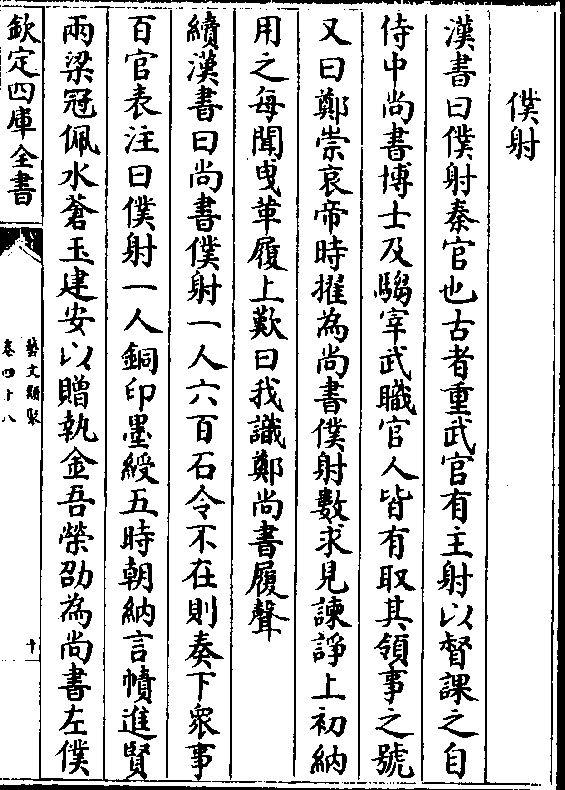 僕射
漢書曰僕射秦官也古者重武官有主射以督課之自
侍中尚書博士及騶宰武職官人皆有取其領事之號
又曰鄭崇哀帝時擢為尚書僕射數求見諫諍上初納
用之每聞曵革履上歎曰我識鄭尚書履聲
續漢書曰尚書僕射一人六百石令不在則奏下衆事
百官表注曰僕射一人銅印墨綬五時朝納言幘進賢
兩梁冠佩水蒼玉建安以贈執金吾榮劭為尚書左僕
欽定四庫全書
藝文類聚
卷四十八
十